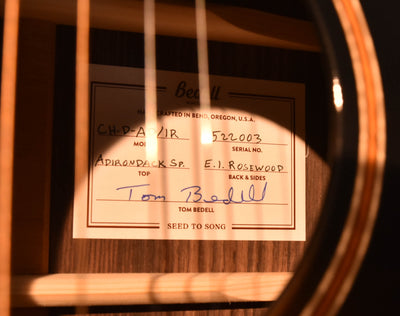 Bedell
HANDCRAFTED IN BEND, OREGON, U.S.A.
CH-D-AD/IR 522003
MODEL SERIAL NO.
ADIRONDACK SP. E.I. ROSEWOOD
TOP BACK & SIDES
Tom Bedell
TOM BEDELL
SEED TO SONG